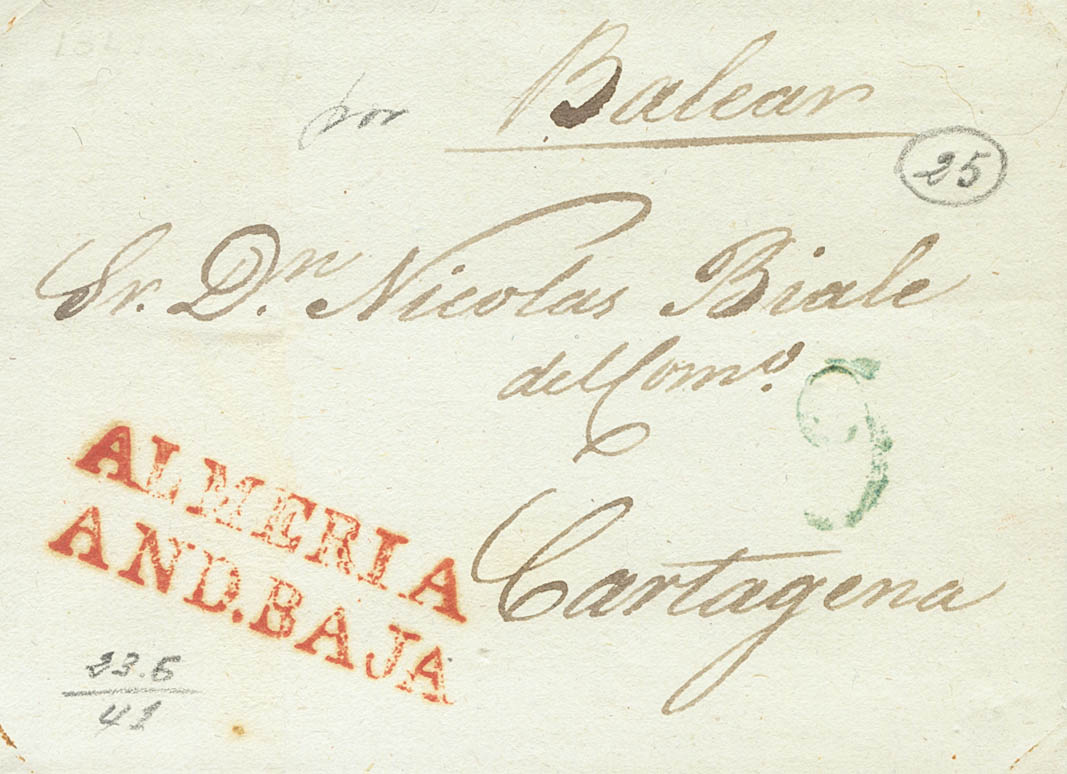 por Balear
25
Sr. Dn. Nicolas Biale
del Como.
9
Cartagena
ALMERIA
AND.BAJA
23.6
41